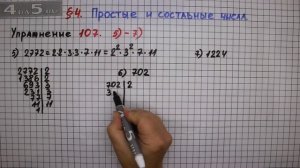 §4. Простые и составные числа.
Упражнение 107. 5) - 7)
5) 2772 = 2·2·3·3·7·11 = 2²·3²·7·11
7) 1224
2772 2
1386 2
693 3
231 3
77 7
11 11
1
6) 702
702 2
3